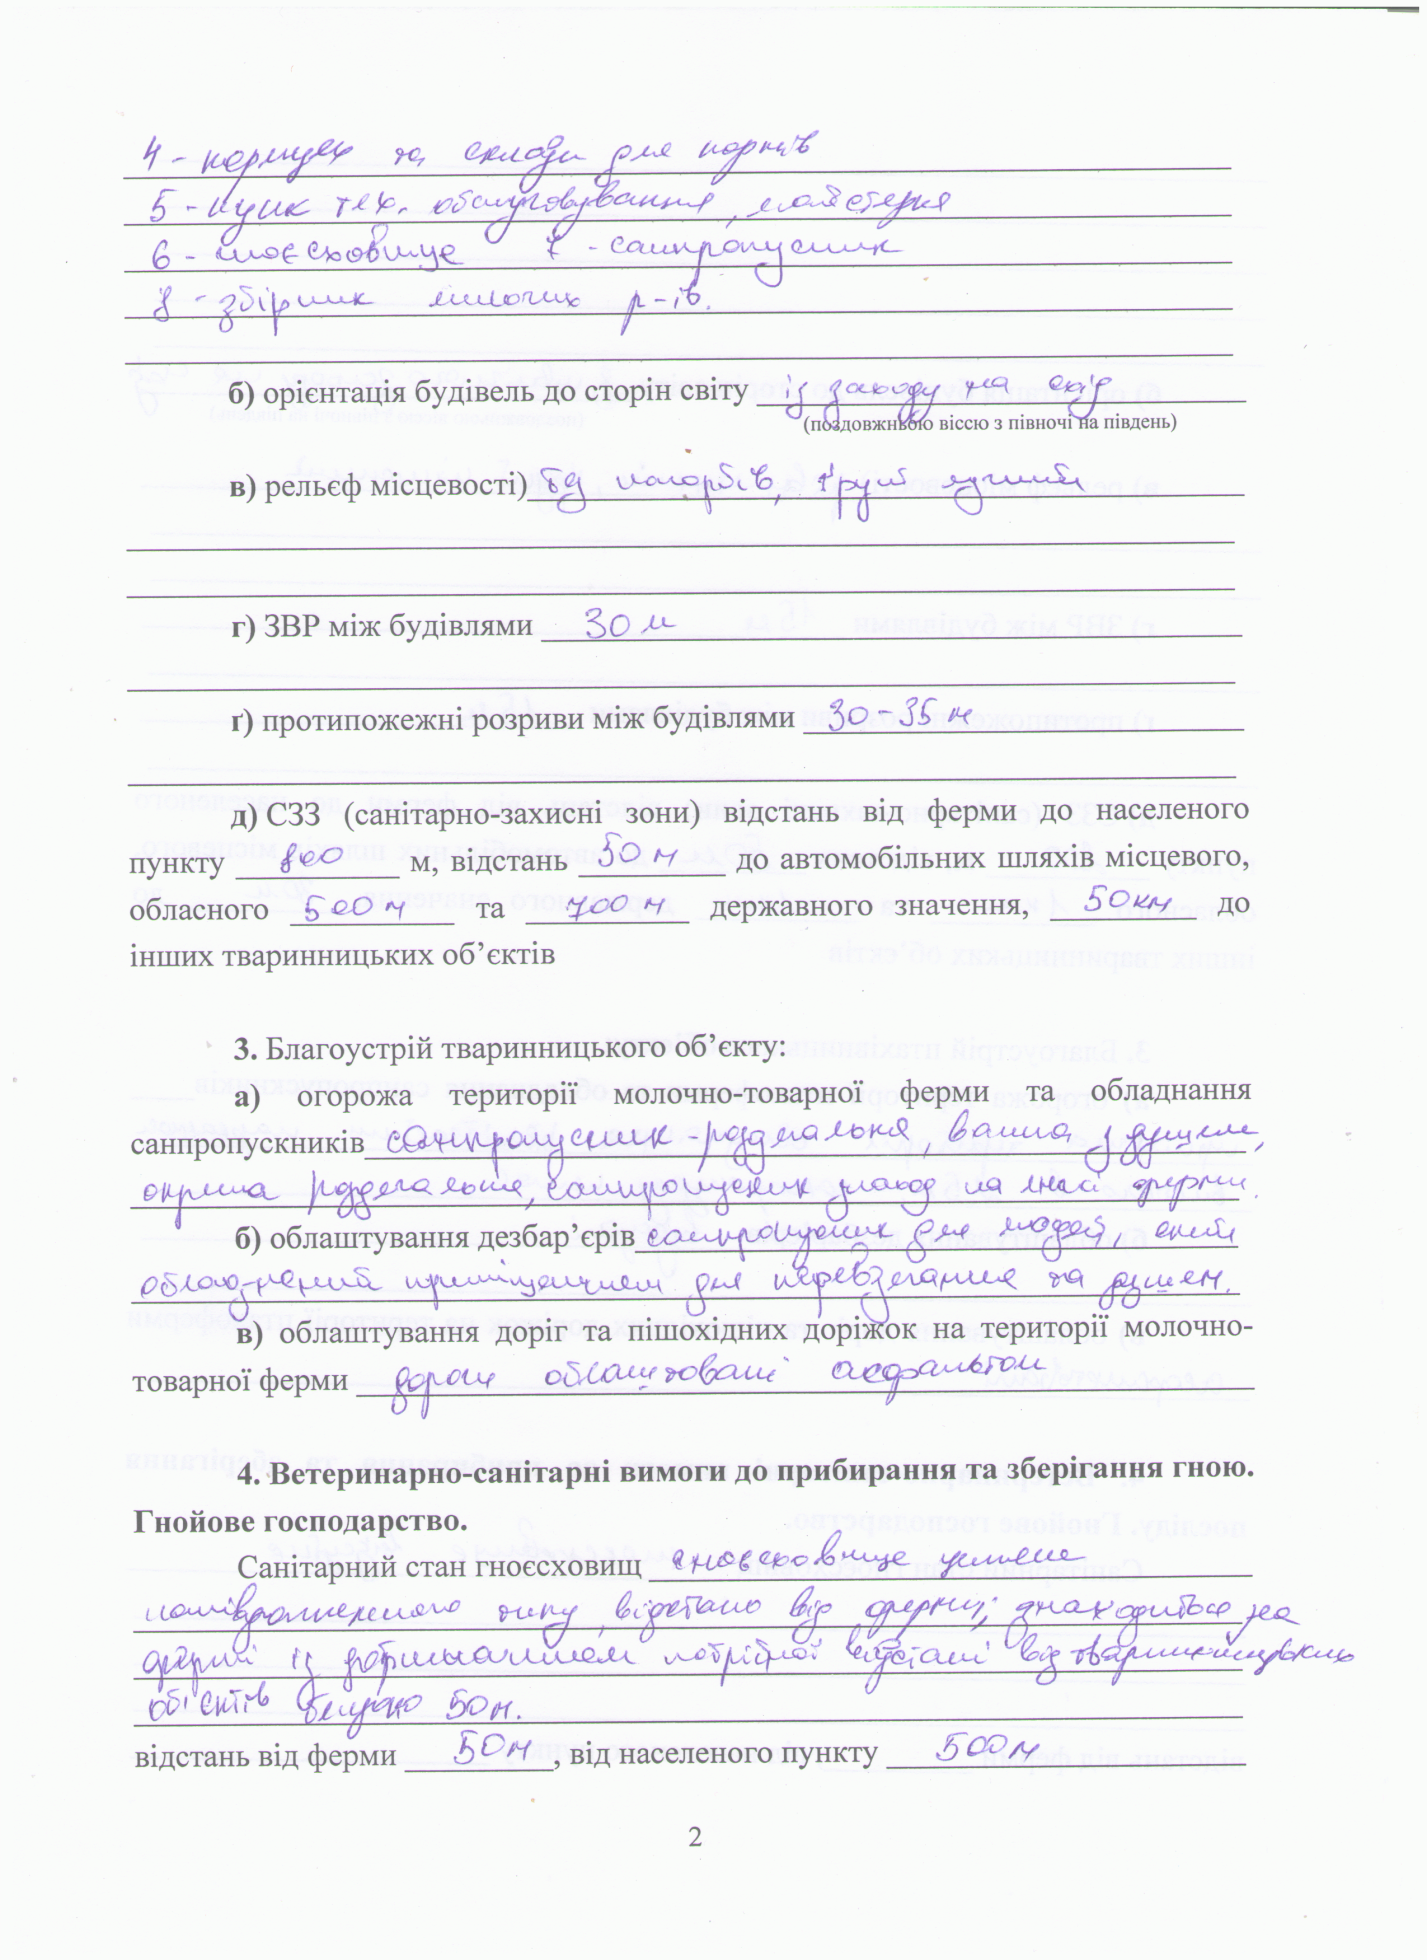 4 - кормцех та склади для кормів
5 - пунк тех. обслуговування, майстерня
6 - гноєсховище 7 - санпропусник
8 - збірник миючих р-ів.
б) орієнтація будівель до сторін світу із заходу на схід
(поздовжньою віссю з півночі на південь)
в) рельєф місцевості) без нагорбів, ґрунт
г) ЗВР між будівлями 30 м
ґ) протипожежні розриви між будівлями 30-35 м
д) СЗЗ (санітарно-захисні зони) відстань від ферми до населеного
пункту 800 м, відстань 50 м до автомобільних шляхів місцевого,
обласного 500 м та 700 м державного значення, 50 км до
інших тваринницьких об’єктів
3. Благоустрій тваринницького об’єкту:
а) огорожа території молочно-товарної ферми та обладнання
санпропускників санпропусник - роздягальня, ванна з душем,
окрема роздягальня, санпропусник ферми.
б) облаштування дезбар’єрів санпропусник для людей, який
облад-наний приміщенням для перевдягання та душем.
в) облаштування доріг та пішохідних доріжок на території молочно-
товарної ферми дороги облаштовані асфальтом
4. Ветеринарно-санітарні вимоги до прибирання та зберігання гною.
Гнойове господарство.
Санітарний стан гноєсховищ гноєсховище
типу, від ферми; знаходиться на
фермі із дотриманням потрібної відстані від тваринницьких
об'єктів близько 50 м.
відстань від ферми 50 м, від населеного пункту 500 м
2